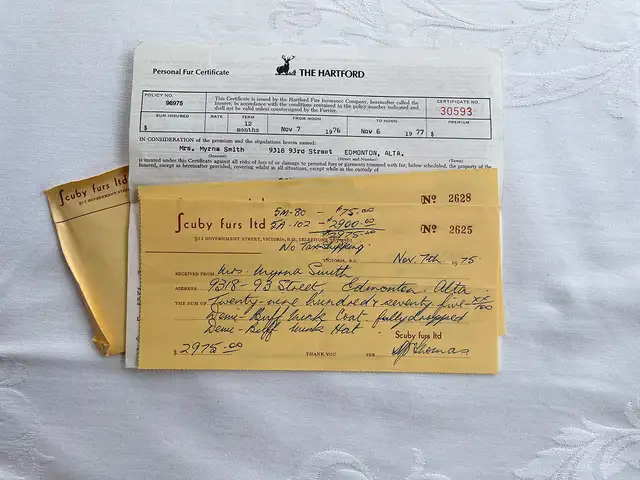 Personal Fur Certificate
THE HARTFORD
POLICY NO.
96975
This Certificate is issued by the Hartford Fire Insurance Company, hereinafter called the
Insurer, in accordance with the conditions contained in the policy number indicated and
shall not be valid unless countersigned by the Furrier.
CERTIFICATE NO.
30593
SUM INSURED RATE TERM FROM NOON TO NOON PREMIUM
$ 12 months Nov 7 1976 Nov 6 1977 $
IN CONSIDERATION of the premium and the stipulations herein named:
Mrs. Myrna Smith 9318 93rd Street EDMONTON, ALTA.
(Insured) (Street and Number) (Town)
is insured under this Certificate against all risks of loss of or damage to personal fur or garments trimmed with fur, below scheduled, the property of the
Insured, except as hereinafter provided, covering whilst in all situations, except while in the custody of
Scuby furs ltd
911 GOVERNMENT STREET,
No 2628
Scuby furs ltd
No 2625
911 GOVERNMENT STREET, VICTORIA, B.C., TELEPHONE
5M-80 - $75.00
2A-102 - $2900.00
$2975.00
No Tax Shipping
VICTORIA, B.C. Nov. 7th 1975
RECEIVED FROM Mrs. Myrna Smith
ADDRESS 9318-93 Street, Edmonton. Alta.
THE SUM OF Twenty-nine hundred & seventy five xx/100
Demi-Buff Mink Coat. fully dropped
Demi-Buff Mink Hat.
Scuby furs ltd
$ 2975.00 THANK YOU PER